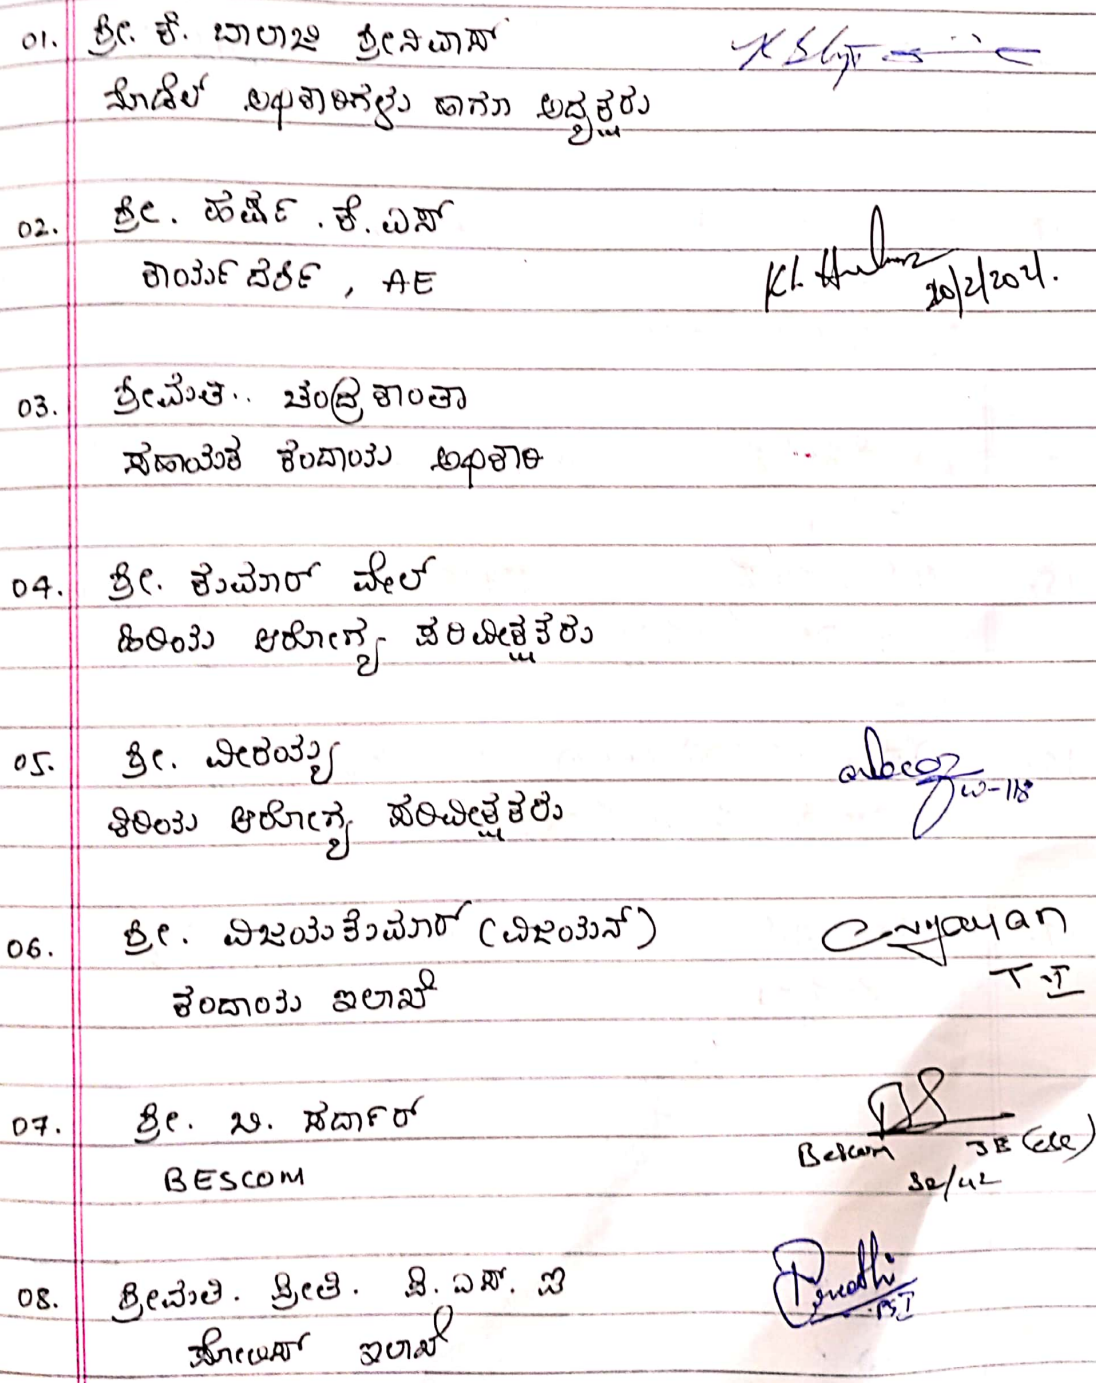 01. ಶ್ರೀ. ಕೆ. ಬಾಲಾಜಿ ಶ್ರೀನಿವಾಸ್
ನೋಡೆಲ್ ಅಧಿಕಾರಿಗಳು ಹಾಗೂ ಅಧ್ಯಕ್ಷರು
02. ಶ್ರೀ. ಹರ್ಷ. ಕೆ. ಎಸ್
ಕಾರ್ಯದರ್ಶಿ, AE
20/2/2021.
03. ಶ್ರೀಮತಿ.. ಚಂದ್ರಕಾಂತಾ
ಸಹಾಯಕ ಕಂದಾಯ ಅಧಿಕಾರಿ
04. ಶ್ರೀ. ಕುಮಾರ್ ವೇಲ್
ಹಿರಿಯ ಆರೋಗ್ಯ ಪರಿವೀಕ್ಷಕರು
05. ಶ್ರೀ. ವೀರಯ್ಯ
ಕಿರಿಯ ಆರೋಗ್ಯ ಪರಿವೀಕ್ಷಕರು
W-118
06. ಶ್ರೀ. ವಿಜಯಕುಮಾರ್ (ವಿಜಯನ್)
ಕಂದಾಯ ಇಲಾಖೆ
T-I
07. ಶ್ರೀ. ಬಿ. ಸರ್ದಾರ್
BESCOM
Bescom JE (ele)
08. ಶ್ರೀಮತಿ. ಪ್ರೀತಿ. ಪಿ. ಎಸ್. ಐ
ಪೋಲಿಸ್ ಇಲಾಖೆ
PSI